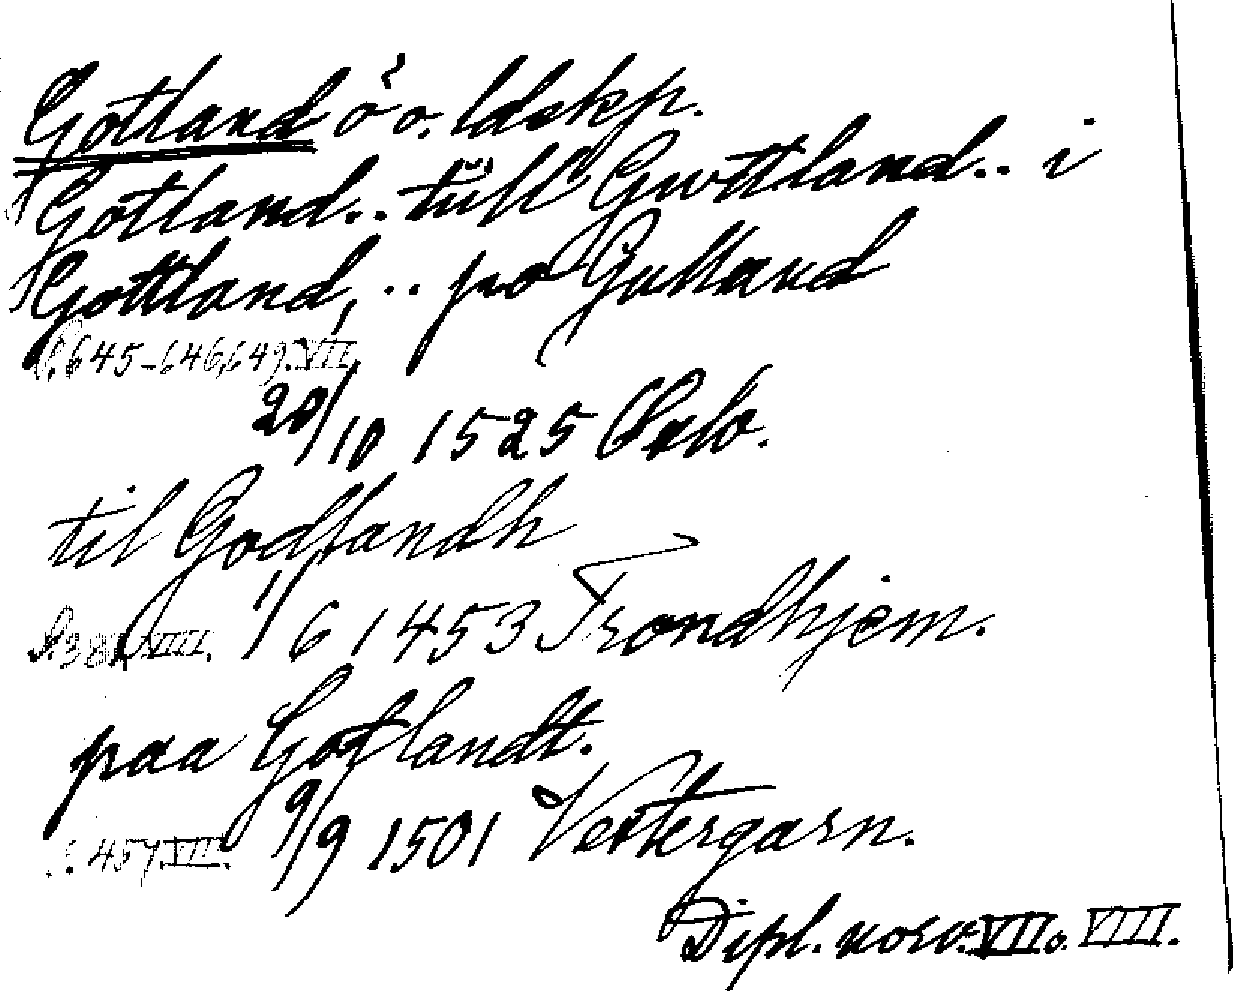 Gotland ö o. ldskp.
Gotland.. till Gwttland.. i
Gottland, .. po Gulland
S. 645-646, 649. VII,
20/10 1525 Oslo.
til Godlandh
S. 381 VIII. 1/6 1453 Trondhjem.
paa Gotlandt.
S. 457. VII. 9/9 1501 Vestergarn.
Dipl. norv. VII o. VIII.